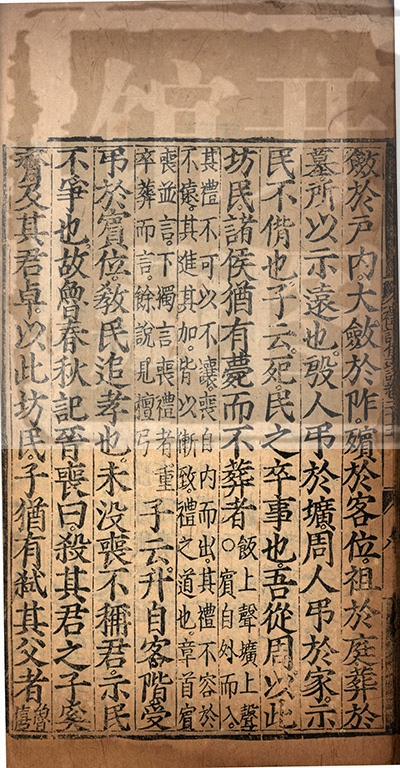 斂於戶內。大斂於阼。殯於客位。祖於庭。葬於
墓。所以示遠也。殷人弔於壙。周人弔於家。示
民不偝也。子云。死。民之卒事也。吾從周。以此
坊民。諸侯猶有薨而不葬者。
飯上聲壙上聲
○賓自外而入。
其禮不可以不讓。喪自內而出。其禮不容於
不遠。其進其加。皆以漸致。禮之道也。章首賓
喪並言。下獨言喪禮者。重
卒葬而言。餘說見檀弓
子云。升自客階。受
弔於賓位。教民追孝也。未沒喪。不稱君。示民
不爭也。故魯春秋記晉喪曰。殺其君之子奚
齊。及其君卓。以此坊民。子猶有弒其父者
魯
僖